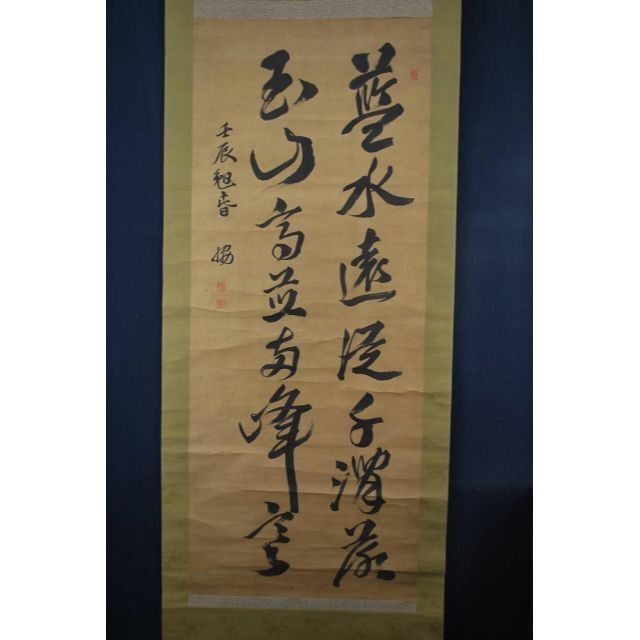 藍水遠從千澗落
玉山高並兩峰寒
壬辰